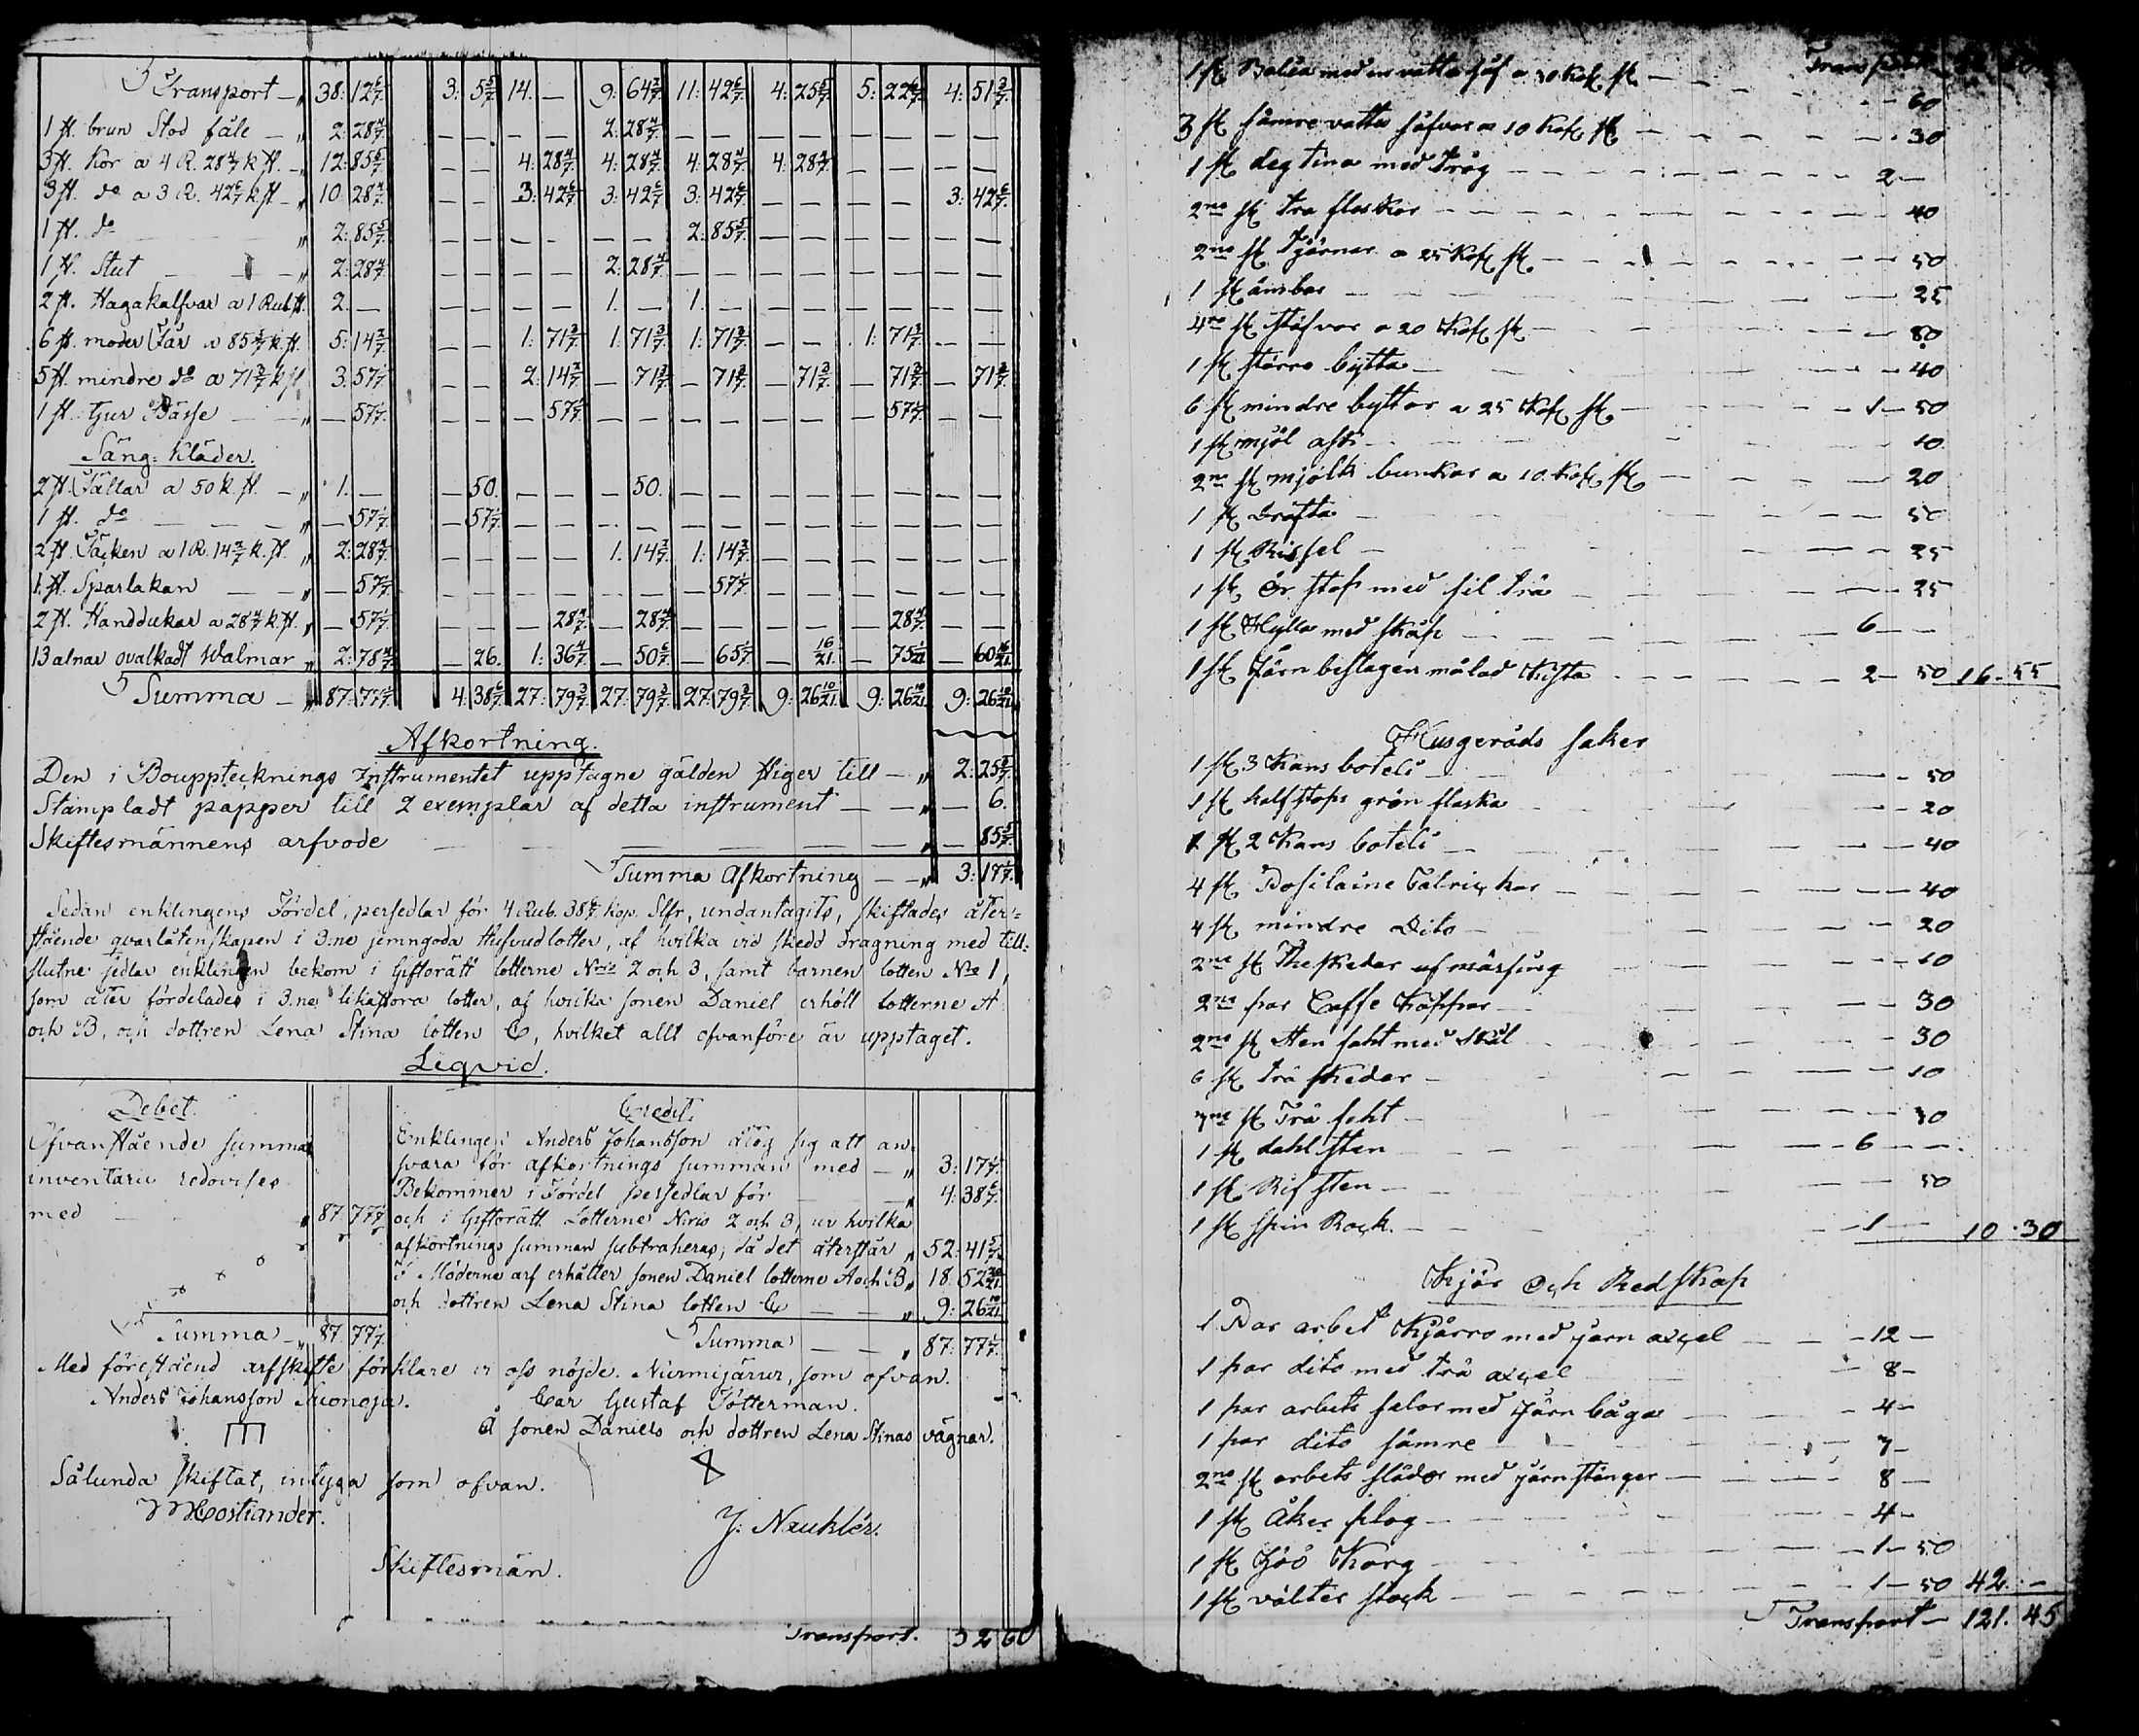 Transport — „ 38: 12 6/7. 3: 5 5/7. 14. — 9: 64 2/7. 11: 42 6/7. 4: 25 5/7. 5: 22 6/7. 4: 51 3/7.
1 st. brun Stod fåle — „ 2: 28 4/7. — — — — 2: 28 4/7. — — — — — — — —
3 st. Kor a 4 R. 28 4/7 k st. — „ 12: 85 5/7. — — 4: 28 4/7. 4: 28 4/7. 4: 28 4/7. 4: 28 4/7. — — — —
3 st. do a 3 R. 42 6/7 k st — „ 10: 28 4/7. — — 3: 42 6/7. 3: 42 6/7. 3: 42 6/7. — — — — 3: 42 6/7.
1 st. do — „ 2: 85 5/7. — — — — — — 2: 85 5/7. — — — — — —
1 st. Stut — — „ 2: 28 4/7. — — — — 2: 28 4/7. — — — — — — — —
2 st. Hagakalfvar a 1 Rub st. 2. — — — — — 1. — 1. — — — — — — —
6 st. moder Får a 85 5/7 k. st. 5: 14 2/7. — — 1: 71 3/7. 1: 71 3/7. 1: 71 3/7. — — 1: 71 3/7. — —
5 st. mindre do a 71 3/7 k st 3: 57 1/7. — — 2: 14 2/7. — 71 3/7. — 71 3/7. — 71 3/7. — 71 3/7. — 71 3/7.
1 st. Gur Bässe — „ — 57 1/7. — — — 57 1/7. — — — — — — — 57 1/7. — —
Säng-Kläder.
2 st. Fällar a 50 k. st. — „ 1. — — 50. — — — 50. — — — — — — — —
1 st. do — — — „ — 57 1/7. — 57 1/7. — — — — — — — — — — — —
2 st. Täcken a 1 R. 14 2/7 k. st. „ 2: 28 4/7. — — — — 1: 14 2/7. 1: 14 2/7. — — — — — —
1. st. Sparlakan — — „ — 57 1/7. — — — — — — — 57 1/7. — — — — — —
2 st. Handdukar a 28 4/7 k. st. „ — 57 1/7. — — — 28 4/7. — 28 4/7. — — — — — 28 4/7. — —
13 alnar ovalkadt Walmar „ 2: 78 4/7. — 26. 1: 36 4/7. — 50 6/7. — 65 1/7. — 16/21. — 75 1/21. — 60 16/21.
Summa — „ 87: 77 1/7. 4: 38 6/7. 27: 79 3/7. 27: 79 3/7. 27: 79 3/7. 9: 26 10/21. 9: 26 10/21. 9: 26 10/21.
Afkortning.
Den i Bouppteknings Instrumentet upptagne gälden stiger till — „ 2: 25 2/7.
Stämpladt papper till 2 exemplar af detta instrument — — „ — 6.
Skiftesmännens arfvode — — — — — „ — 85 5/7.
Summa Afkortning — — „ 3: 17 1/7.
Sedan enklingens Fördel, persedlar för 4 Rub. 38 6/7. Kop. Slfr, undantagits, skiftades åter-
stående qvarlåtenskapen i 3:ne jemngoda Hufvudlotter, af hvilka vid skedd dragning med till-
slutne sedlar enklingen bekom i Giftorätt lotterne Nris 2 och 3, samt barnen lotten No 1,
som åter fördelades i 3:ne likastora lotter, af hvilka sonen Daniel erhöll lotterne A
och B, och dottren Lena Stina lotten C, hvilket allt ofvanföre är upptaget.
Liqvid.
Debet.
Ofvanstående summa
inventarii redovises
med — „ 87. 77 1/7.
Summa — „ 87. 77 1/7.
Credit.
Enklingen Anders Johansson åtog sig att an-
svara för afkortnings summan med — „ 3: 17 1/7.
Bekommer i Fördel persedlar för — — „ 4: 38 6/7.
och i Giftorätt Lotterne Nris 2 och 3, ur hvilka
afkortnings summan subtraheras, då det återstår „ 52: 41 5/7.
I Möderne arf erhåller sonen Daniel lotterne A och B „ 18. 52 20/21.
och dottren Lena Stina lotten C — — „ 9: 26 10/21.
Summa — — „ 87: 77 1/7.
Med föreståend arfskifte förklare vi oss nöjde. Nurmijärvi, som ofvan.
Anders Johansson . Car Gustaf Tötterman.
å sonen Daniels och dottren Lena Stinas vägnar.
Sålunda skiftat, intyga som ofvan.
J: Nauklér.
Skiftesmän.
Transport. 52 60
Transport
1 st Balia med en vatte så a 30 Kop st — 60
3 st sämre vatte såfvar a 10 Kop st — 30
1 st deg tina med tråg — 2 —
2ne st tra flaskor — 40
2ne st tjärnor a 25 Kop st — 50
1 st ämbar — 25
4ra st stäfvor a 20 Kop st — 80
1 st större bytta — 40
6 st mindre byttor a 25 Kop st — 1 — 50
1 st mjöl ask — 10.
2ne st mjölk bunkar a 10. Kop st — 20
1 st Dråfta — 50
1 st Rissel — 25
1 st Ör stop med sil trä — 25
1 st Hylla med skåp — 6 — —
1 st Järn beslagen målad Kista — 2 — 50 16. 55
Husgeråds saker
1 st 3 Kans boteli — 50
1 st half stops grön flaska — 20
1 st 2 Kans boteli — 40
4 st Posilaine Talrickar — 40
4 st mindre Dito — 20
2ne st The skedar af mässing — 10
2ne par Caffe Koppar — 30
2ne st Sten faht med skål — 30
6 st trä skedar — 10
3ne st Trä faht — 30
1 st dahl sten — 6 — —
1 st Rif sten — 50
1 st spin Rock. — 1 — 10. 30
Kjör och Redskap
1 Par arbet Kjärro med järn axcel — 12 —
1 par dito med trä axcel — 8 —
1 par arbets selar med järn bågar — 4 —
1 par dito sämre — 3 —
2ne st arbets slädor med järn stänger — 8 —
1 st Åker plog — 4 —
1 st Hö Korg — 1 — 50
1 st välter stock — 1 — 50 42. —
Transport — 121. 45